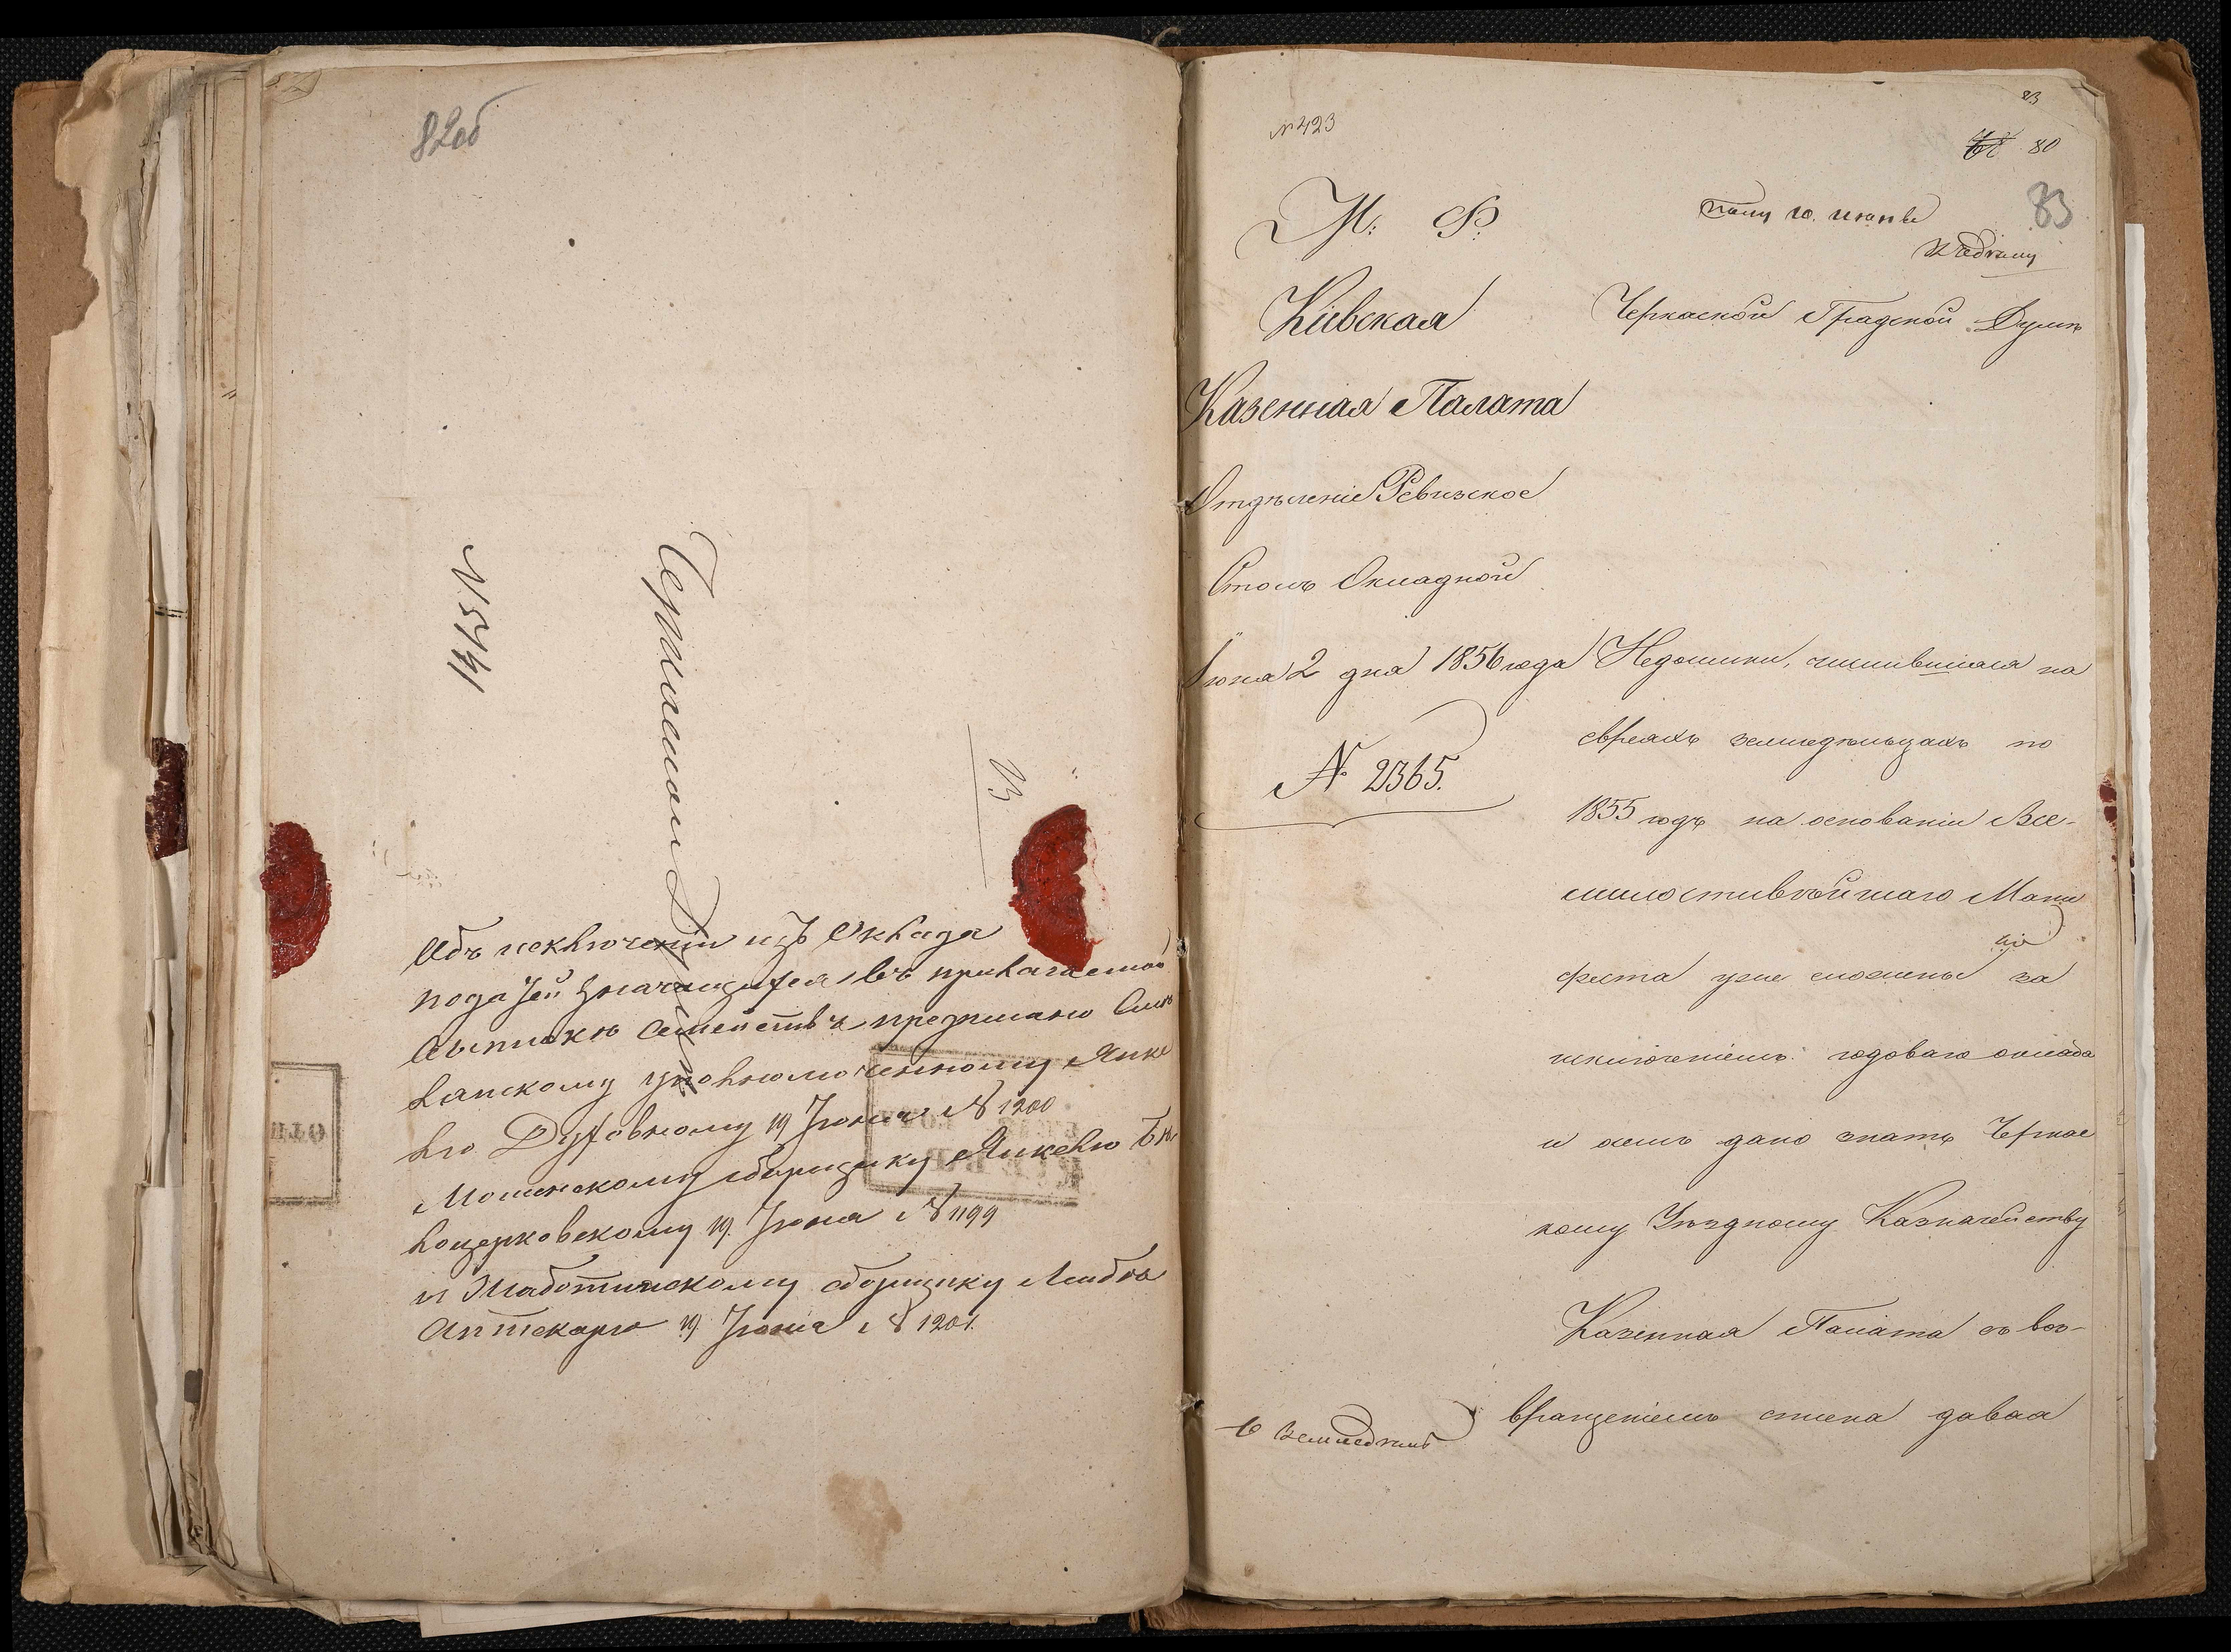 82 об
№ 5741
23
Объ исключеніи изъ Оклада
податей значащихся въ прилагаемой
выпискѣ семействъ предписано Смѣ
лянскому уполномоченному Янке
лю Духовному 19 Іюня № 1200
Мошенскому сборщику Янкелю Бѣ
лоцерковскому 19 Іюня № 1199
и Жаботинскому сборщику Лейбѣ
Аптекарю 19 Іюня № 1201.
№ 423
23
80
83
М. Ф.
Пол. 10. июня
Кіевская
Черкаской Градской Думѣ
Казенная Палата
Отдѣленіе Ревизское
Столъ Окладной
Іюня 2 дня 1856 года
№ 2365.
Недоимки, числившіяся на
евреяхъ земледѣльцахъ по
1855 годъ на основаніи Все-
милостивѣйшаго Мани
феста уже сложены за
исключеніемъ годоваго оклада
и о семъ дано знать Черкас
кому Уѣздному Казначейству
Казенная Палата съ воз-
вращеніемъ списка давая
О земледѣльц